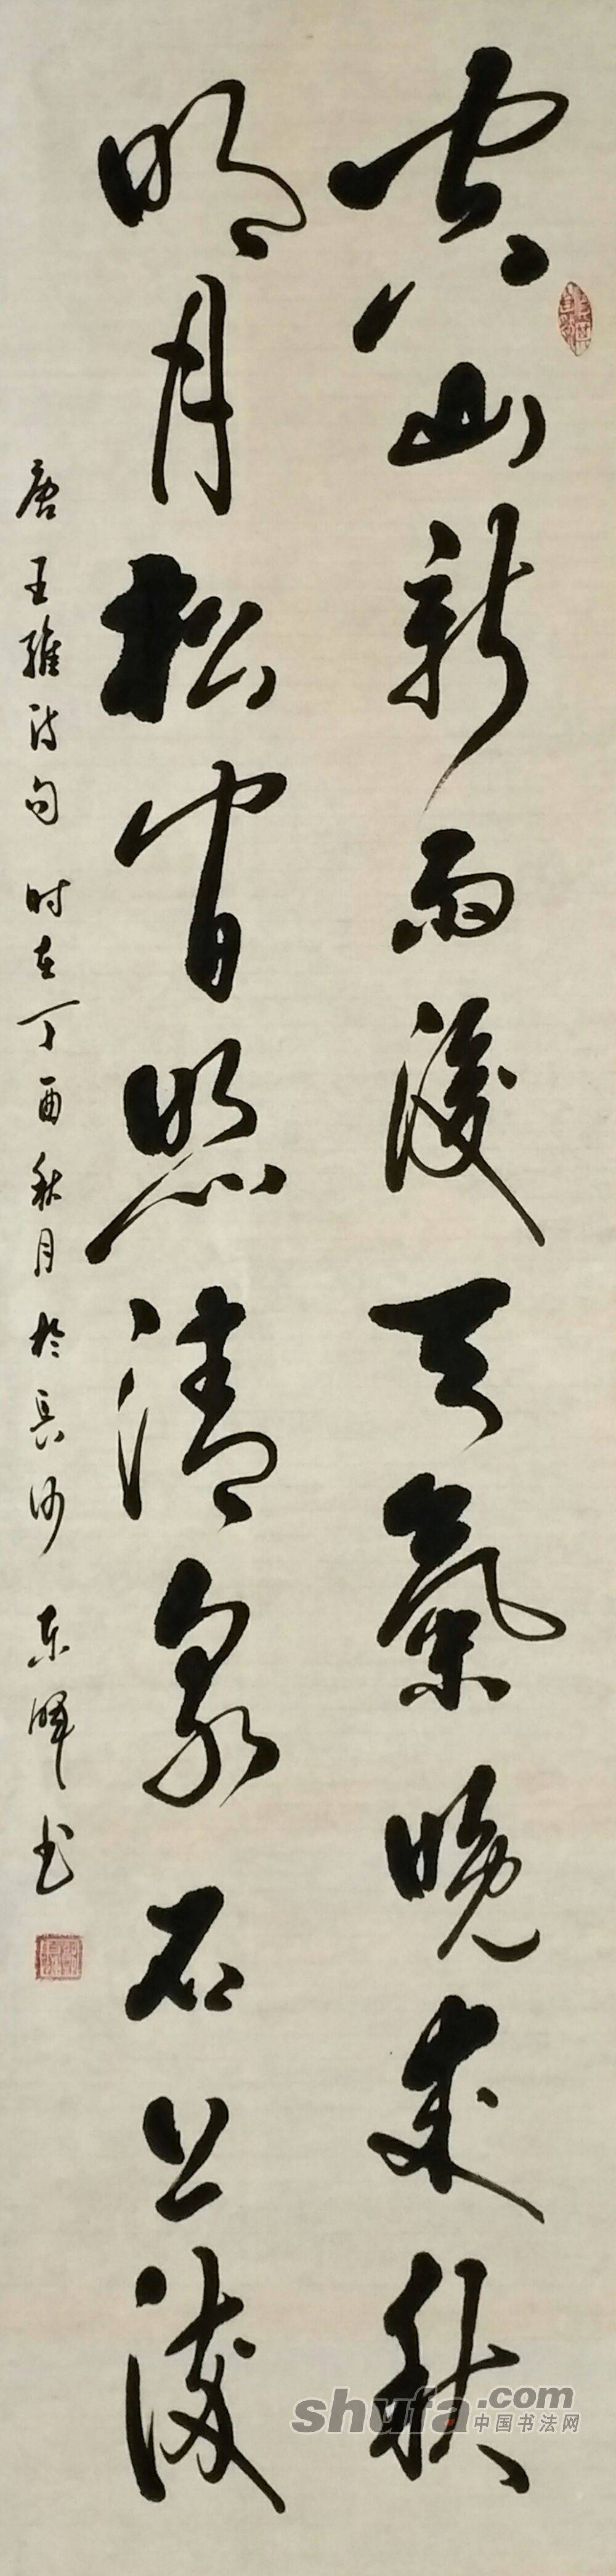 空山新雨後天氣晚來秋
明月松間照清泉石上流
唐王維诗句 时在丁酉秋月於長沙 东晖书
shufa.com
中国书法网